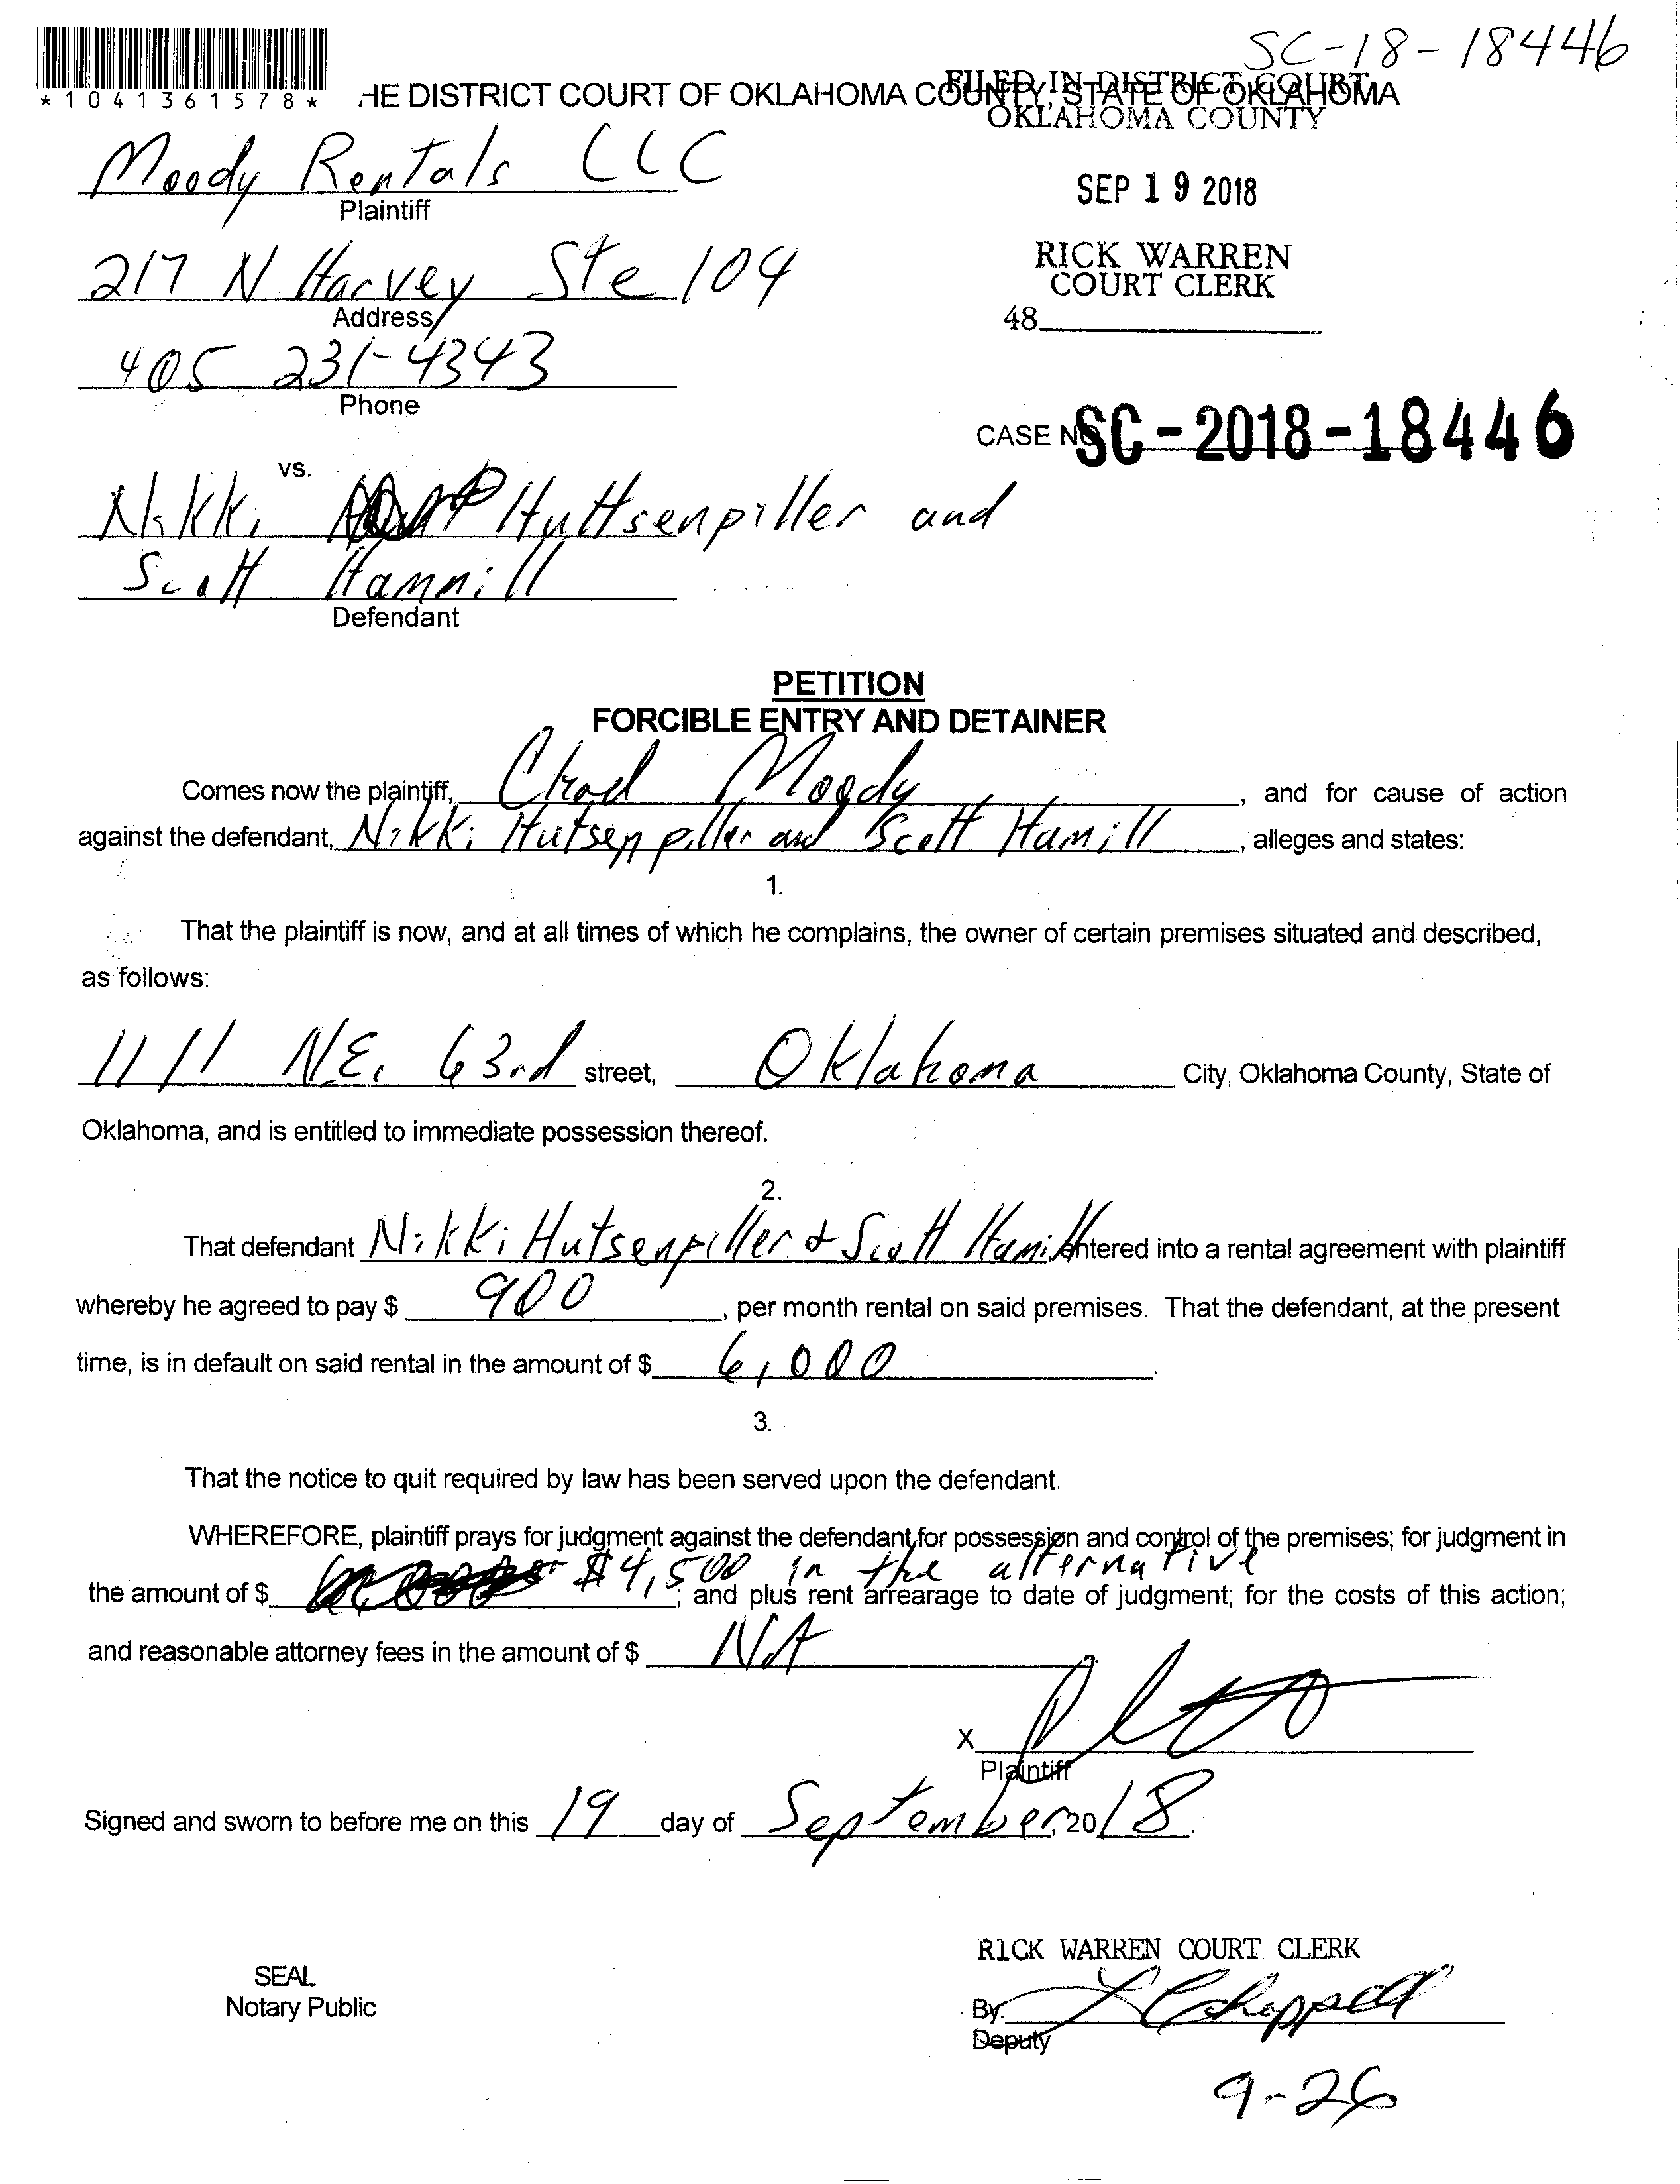 SC-18-18446
*1041361578*
HE DISTRICT COURT OF OKLAHOMA COUNTY, STATE OF OKLAHOMA
FILED IN DISTRICT COURT
OKLAHOMA COUNTY
Moody Rentals LLC
Plaintiff
SEP 19 2018
217 N Harvey Ste 104
Address
RICK WARREN
COURT CLERK
48
405 231-4343
Phone
CASE NO SC-2018-18446
vs.
Nikki Huttsenpiller and
Scott Hammill
Defendant
PETITION
FORCIBLE ENTRY AND DETAINER
Comes now the plaintiff, Chad Moody, and for cause of action
against the defendant, Nikki Hutsenpiller and Scott Hamill, alleges and states:
1.
That the plaintiff is now, and at all times of which he complains, the owner of certain premises situated and described,
as follows:
1111 NE. 63rd street, Oklahoma City, Oklahoma County, State of
Oklahoma, and is entitled to immediate possession thereof.
2.
That defendant Nikki Hutsenpiller & Scott Hamill entered into a rental agreement with plaintiff
whereby he agreed to pay $ 900, per month rental on said premises. That the defendant, at the present
time, is in default on said rental in the amount of $ 6,000.
3.
That the notice to quit required by law has been served upon the defendant.
WHEREFORE, plaintiff prays for judgment against the defendant for possession and control of the premises; for judgment in
the amount of $ $4,500 in the alternative; and plus rent arrearage to date of judgment; for the costs of this action;
and reasonable attorney fees in the amount of $ NA
X
Plaintiff
Signed and sworn to before me on this 19 day of September, 2018.
RICK WARREN COURT CLERK
SEAL
Notary Public
By: L Chappell
Deputy
9-26